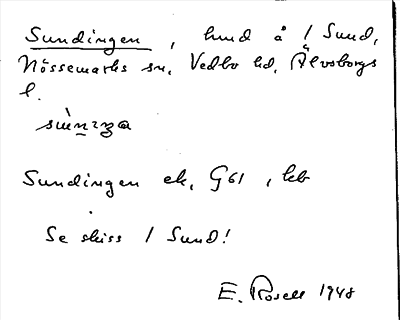 Sundingen, hmd å / Sund,
Nössemarks sn, Vedbo hd, Älvsborgs
l.
Sundingen ek, G61, lcb
Se skiss / Sund!
E. Rosell 1948